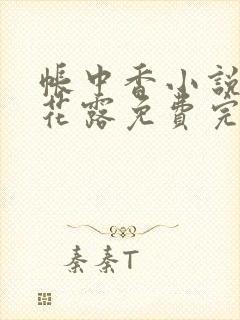 帳中香小說
花露免費完
秦秦T